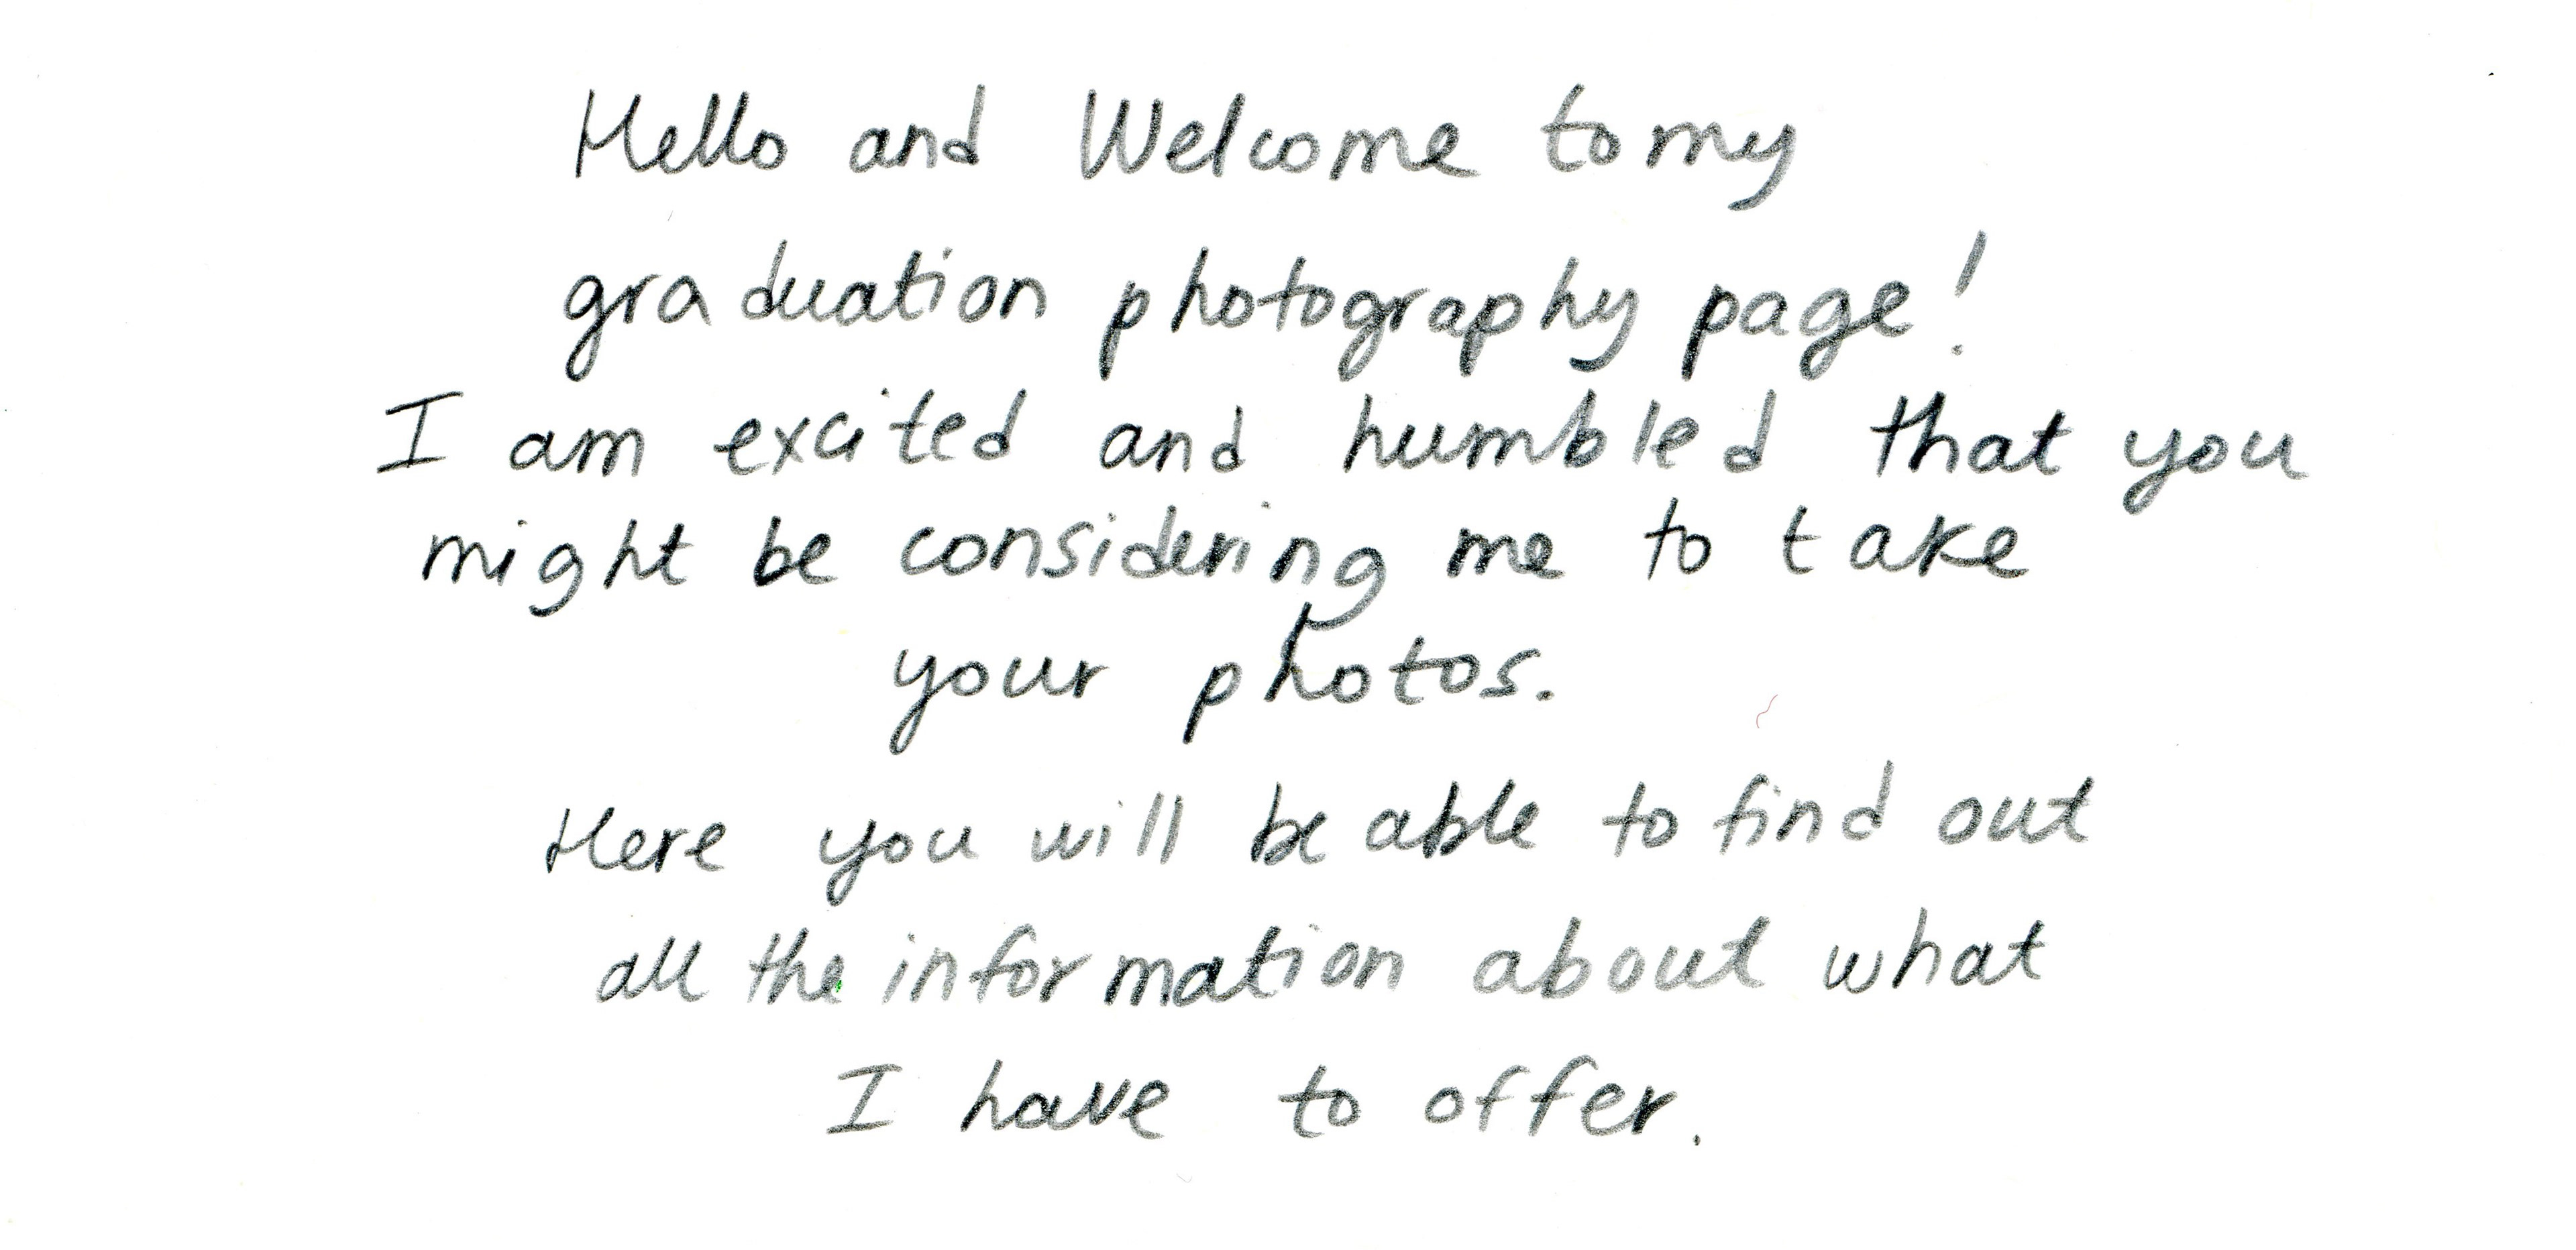 Hello and Welcome to my
graduation photography page!
I am excited and humbled that you
might be considering me to take
your photos.
Here you will be able to find out
all the information about what
I have to offer.